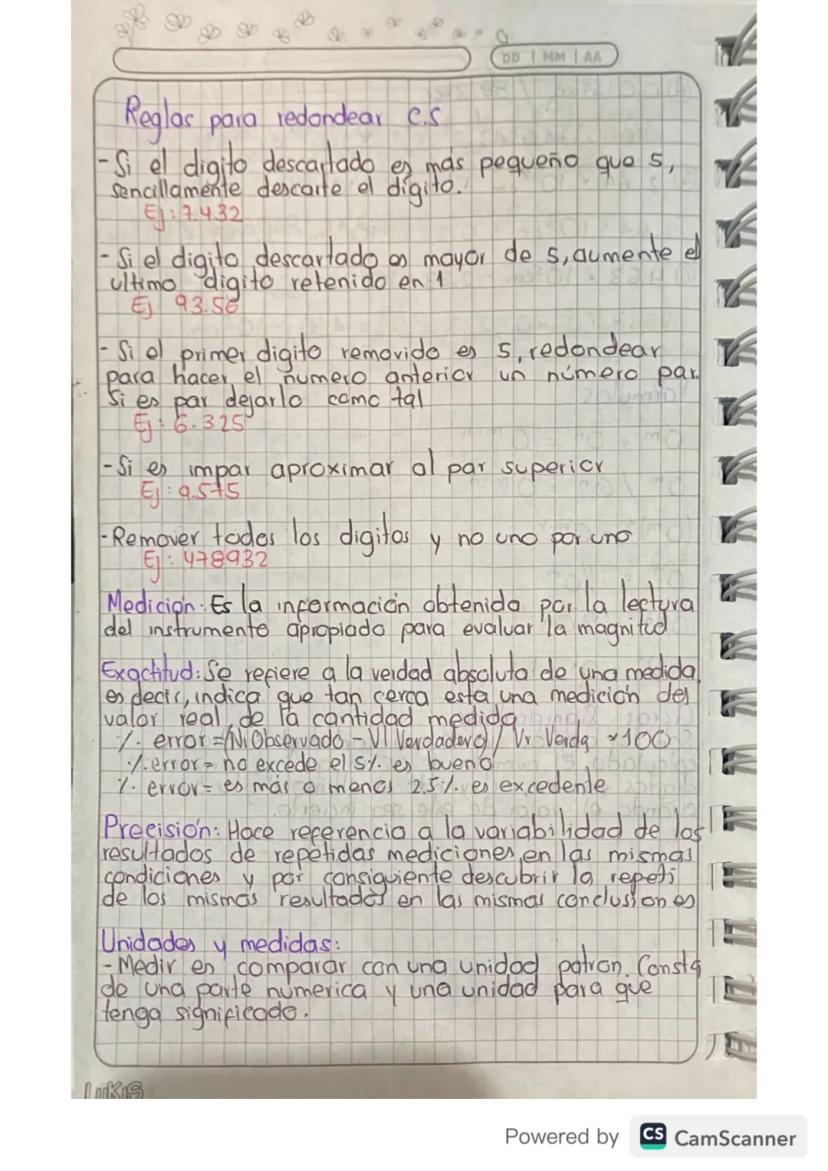 DD | MM | AA
Reglas para redondear c.s
- Si el digito descartado es más pequeño que 5,
sencillamente descarte el dígito.
Ej: 7.432
- Si el digito descartado es mayor de 5, aumente el
ultimo digito retenido en 1
Ej 93.56
- Si el primer digito removido es 5, redondear
para hacer el numero anterior un número par
Si es par dejarlo como tal
Ej: 6.325
- Si es impar aproximar al par superior
Ej: 9.575
- Remover todos los digitos y no uno por uno
Ej: 478932
Medición: Es la información obtenida por la lectura
del instrumento apropiado para evaluar la magnitud
Exactitud: Se refiere a la verdad absoluta de una medida,
es decir, indica que tan cerca esta una medición del
valor real de la cantidad medida
% error = / Observado - Vl Verdadero / Vr Verda × 100
% error = no excede el 5% es bueno
% error = es más o menos 2.5% es excedente
Precisión: Hace referencia a la variabilidad de los
resultados de repetidas mediciones en las mismas
condiciones y por consiguiente descubrir la repeti
de los mismos resultados en las mismas conclusiones
Unidades y medidas:
- Medir es comparar con una unidad patron. Consta
de una parte numerica y una unidad para que
tenga significado.
LUKAS
Powered by CS CamScanner